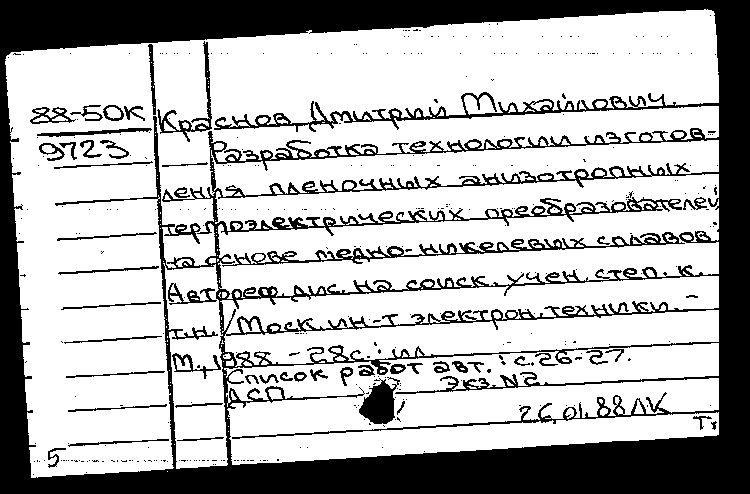 88-50К
9723
Краснов, Дмитрий Михайлович.
Разработка технологии изготов-
ления пленочных анизотропных
термоэлектрических преобразователей
на основе медно-никелевых сплавов:
Автореф. дис. на соиск. учен. степ. к.
т.н. / Моск. ин-т электрон. техники. -
М., 1988. - 28с.: ил.
Список работ авт.: с.26-27.
ДСП. Экз. №2.
26.01.88 ЛК
5